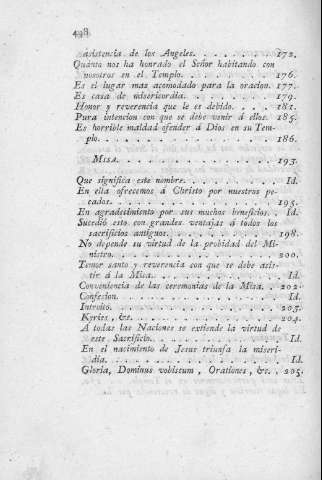 498
asistencia de los Angeles. . . . . . . . . 172.
Quánto nos ha honrado el Señor habitando con
nosotros en el Templo. . . . . . . . . . 176.
Es el lugar mas acomodado para la oracion. 177.
Es casa de misericordia. . . . . . . . . . 179.
Honor y reverencia que le es debido. . . . 181.
Pura intencion con que se debe venir á ellos. 185.
Es horrible maldad ofender á Dios en su Tem-
plo. . . . . . . . . . . . . . . . . . 186.
MISA. . . . . . . . . . . . . . . . . 193.
Que significa este nombre. . . . . . . . . Id.
En ella ofrecemos á Christo por nuestros pe-
cados. . . . . . . . . . . . . . . . . 195.
En agradecimiento por sus muchos beneficios. . Id.
Sucedió esto con grandes ventajas á todos los
sacrificios antiguos. . . . . . . . . . . 198.
No depende su virtud de la probidad del Mi-
nistro. . . . . . . . . . . . . . . . . 200.
Temor santo y reverencia con que se debe asis-
tir á la Misa. . . . . . . . . . . . . . Id.
Conveniencia de las ceremonias de la Misa. . 202.
Confesion. . . . . . . . . . . . . . . . Id.
Introito. . . . . . . . . . . . . . . . . 203.
Kyries, &c. . . . . . . . . . . . . . . . 204.
A todas las Naciones se extiende la virtud de
este Sacrificio. . . . . . . . . . . . . . Id.
En el nacimiento de Jesus triunfa la miseri-
dia. . . . . . . . . . . . . . . . . . Id.
Gloria, Dominus vobiscum, Orationes, &c. . 205.